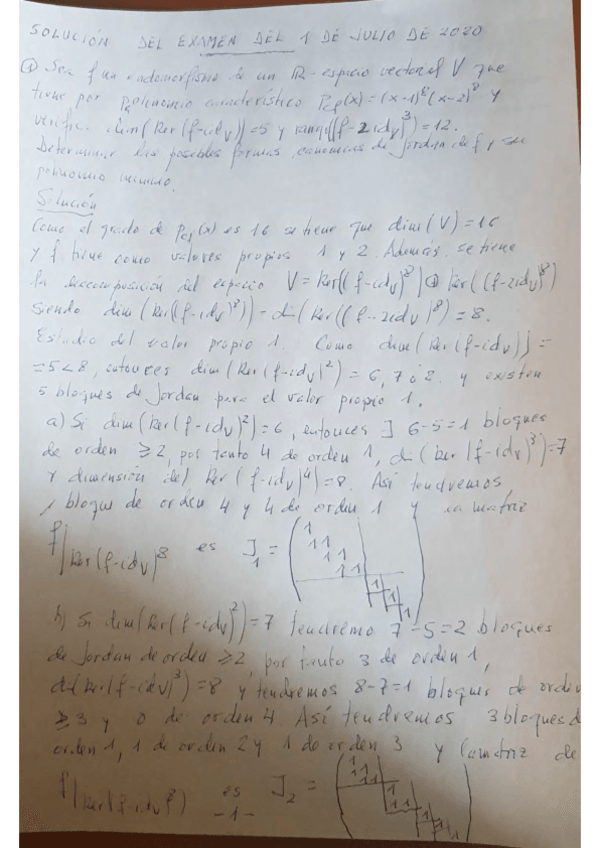 SOLUCIÓN DEL EXAMEN DEL 1 DE JULIO DE 2020
① Sea f un endomorfismo de un ℝ-espacio vectorial V que
tiene por polinomio característico P_cf(x)=(x-1)^8(x-2)^8 y
verifica dim(Ker(f-id_V))=5 y rango((f-2id_V)^3)=12.
Determinar las posibles formas canónicas de Jordan de f y su
polinomio mínimo.
Solución
Como el grado de P_cf(x) es 16 se tiene que dim(V)=16
y f tiene como valores propios 1 y 2. Además se tiene
la descomposición del espacio V=Ker((f-id_V)^8)⊕Ker((f-2id_V)^8)
siendo dim(Ker((f-id_V)^8))=di(Ker((f-2id_V)^8)=8.
Estudio del valor propio 1. Como dim(Ker(f-id_V))=
=5<8, entonces dim(Ker(f-id_V)^2)=6, 7 ó 8. y existen
5 bloques de Jordan para el valor propio 1.
a) Si dim(Ker(f-id_V)^2)=6, entonces ∃ 6-5=1 bloques
de orden ≥2, por tanto 4 de orden 1, di(Ker(f-id_V)^3)=7
y dimensión del Ker(f-id_V)^4)=8. Así tendremos
1 bloque de orden 4 y 4 de orden 1 y la matriz
f|Ker(f-id_V)^8 es J_1 = ( 1 1 1 1 1 1 1 1 1 1 1 )
b) Si dim(Ker(f-id_V)^2)=7 tendremo 7-5=2 bloques
de Jordan de orden ≥2, por tanto 3 de orden 1,
di(Ker(f-id_V)^3)=8 y tendremos 8-7=1 bloques de orden
≥3 y 0 de orden 4. Así tendremos 3 bloques de
orden 1, 1 de orden 2 y 1 de orden 3 y la matriz de
f|Ker(f-id_V)^8) es J_2 =
-1-